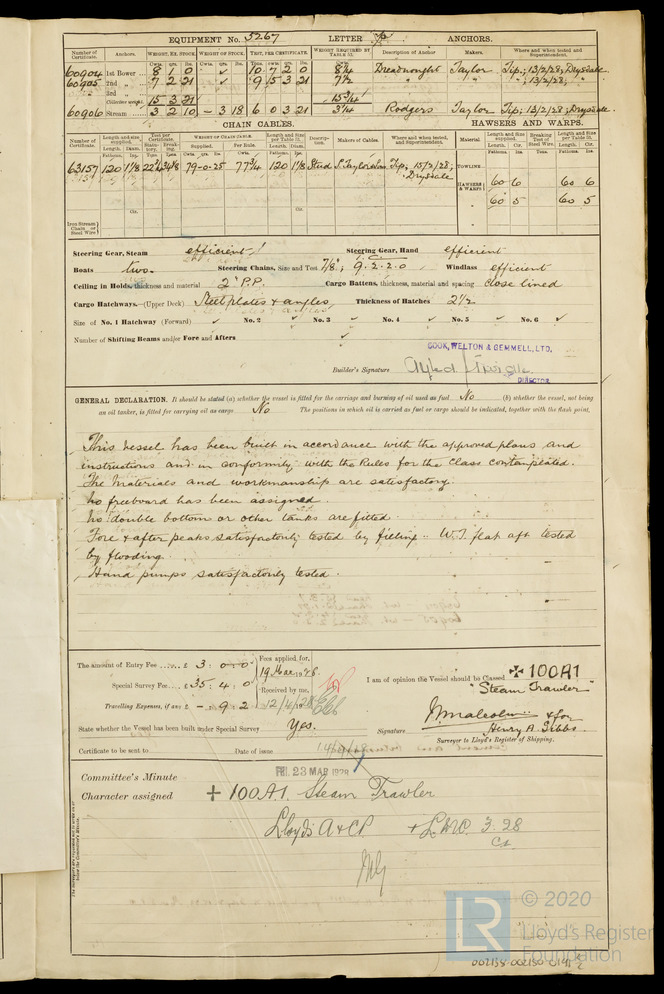 EQUIPMENT No. 5267 LETTER p ANCHORS.
Number of Certificate. Anchors. WEIGHT, EX. STOCK. WEIGHT OF STOCK. TEST, PER CERTIFICATE. WEIGHT REQUIRED BY TABLE 53. Description of Anchor Makers. Where and when tested and Superintendent.
Cwts. qrs. lbs.
60904 1st Bower 8 1 0 10 7 2 0 8¼ Dreadnought Taylor Tip; 13/2/28; Drysdale
60905 2nd " 7 2 21 9 15 3 21 7½ " " "; 13/2/28; "
3rd "
Collective weight. 15 3 21 15¾
60906 Stream 3 2 10 – 3 18 6 0 3 21 3¼ Rodgers Taylor Tip; 13/2/28; Drysdale
CHAIN CABLES. HAWSERS AND WARPS.
Number of Certificate. Length and size supplied. Test per Certificate. WEIGHT OF CHAIN CABLE. Length and size per Table 53. Description. Makers of Cables. Where and when tested, and Superintendent. Material Length and size supplied. Breaking Test of Steel Wire. Length and size per Table 53.
Length. Diam. Statutory. Breaking. Supplied. Per Rule. Length. Diam. Length. Cir. Length. Cir.
63157 120 1⅛ 79-0-25 77¾ 120 1⅛ Stud S. Taylor Tip; 15/2/28; Drysdale
TOWLINE
HAWSERS & WARPS 60 6 60 6
60 5 60 5
Iron Stream Chain or Steel Wire
Steering Gear, Steam efficient Steering Gear, Hand efficient
Boats two Steering Chains, Size and Test 7/8"; 9.2.2.0 Windlass efficient
Ceiling in Holds, thickness and material 2" P.P. Cargo Battens, thickness, material and spacing close lined
Cargo Hatchways.—(Upper Deck) Steel plates & angles Thickness of Hatches 2½
Size of No. 1 Hatchway (Forward) No. 2 No. 3 No. 4 No. 5 No. 6
Number of Shifting Beams and/or Fore and Afters
COOK, WELTON & GEMMELL, LTD.
Builder's Signature
DIRECTOR.
GENERAL DECLARATION. It should be stated (a) whether the vessel is fitted for the carriage and burning of oil used as fuel No (b) whether the vessel, not being
an oil tanker, is fitted for carrying oil as cargo No The positions in which oil is carried as fuel or cargo should be indicated, together with the flash point.
This vessel has been built in accordance with the approved plans and
instructions and in conformity with the Rules for the Class contemplated.
The Materials and workmanship are satisfactory.
No freeboard has been assigned.
No double bottom or other tanks are fitted.
Fore & after peaks satisfactorily tested by filling. W.T. flat aft tested
by flooding.
Hand pumps satisfactorily tested.
The amount of Entry Fee £ 3 : 0 : 0 Fees applied for,
19 Mar 1928
Special Survey Fee £ 35 : 4 : 0 Received by me,
Travelling Expenses, if any £ – : 9 : 2 12/4/28
I am of opinion the Vessel should be Classed ✠ 100A1
"Steam Trawler"
State whether the Vessel has been built under Special Survey Yes.
Signature J. Malcolm & for
Henry A. Gibbs.
Surveyor to Lloyd's Register of Shipping.
Certificate to be sent to Date of issue
Committee's Minute FRI. 23 MAR 1928
Character assigned + 100A1 Steam Trawler
Lloyd's A&CP. + LMC. 3.28
CS
© 2020
LR
Lloyd's Register
Foundation
002138-002150-0195 2/2